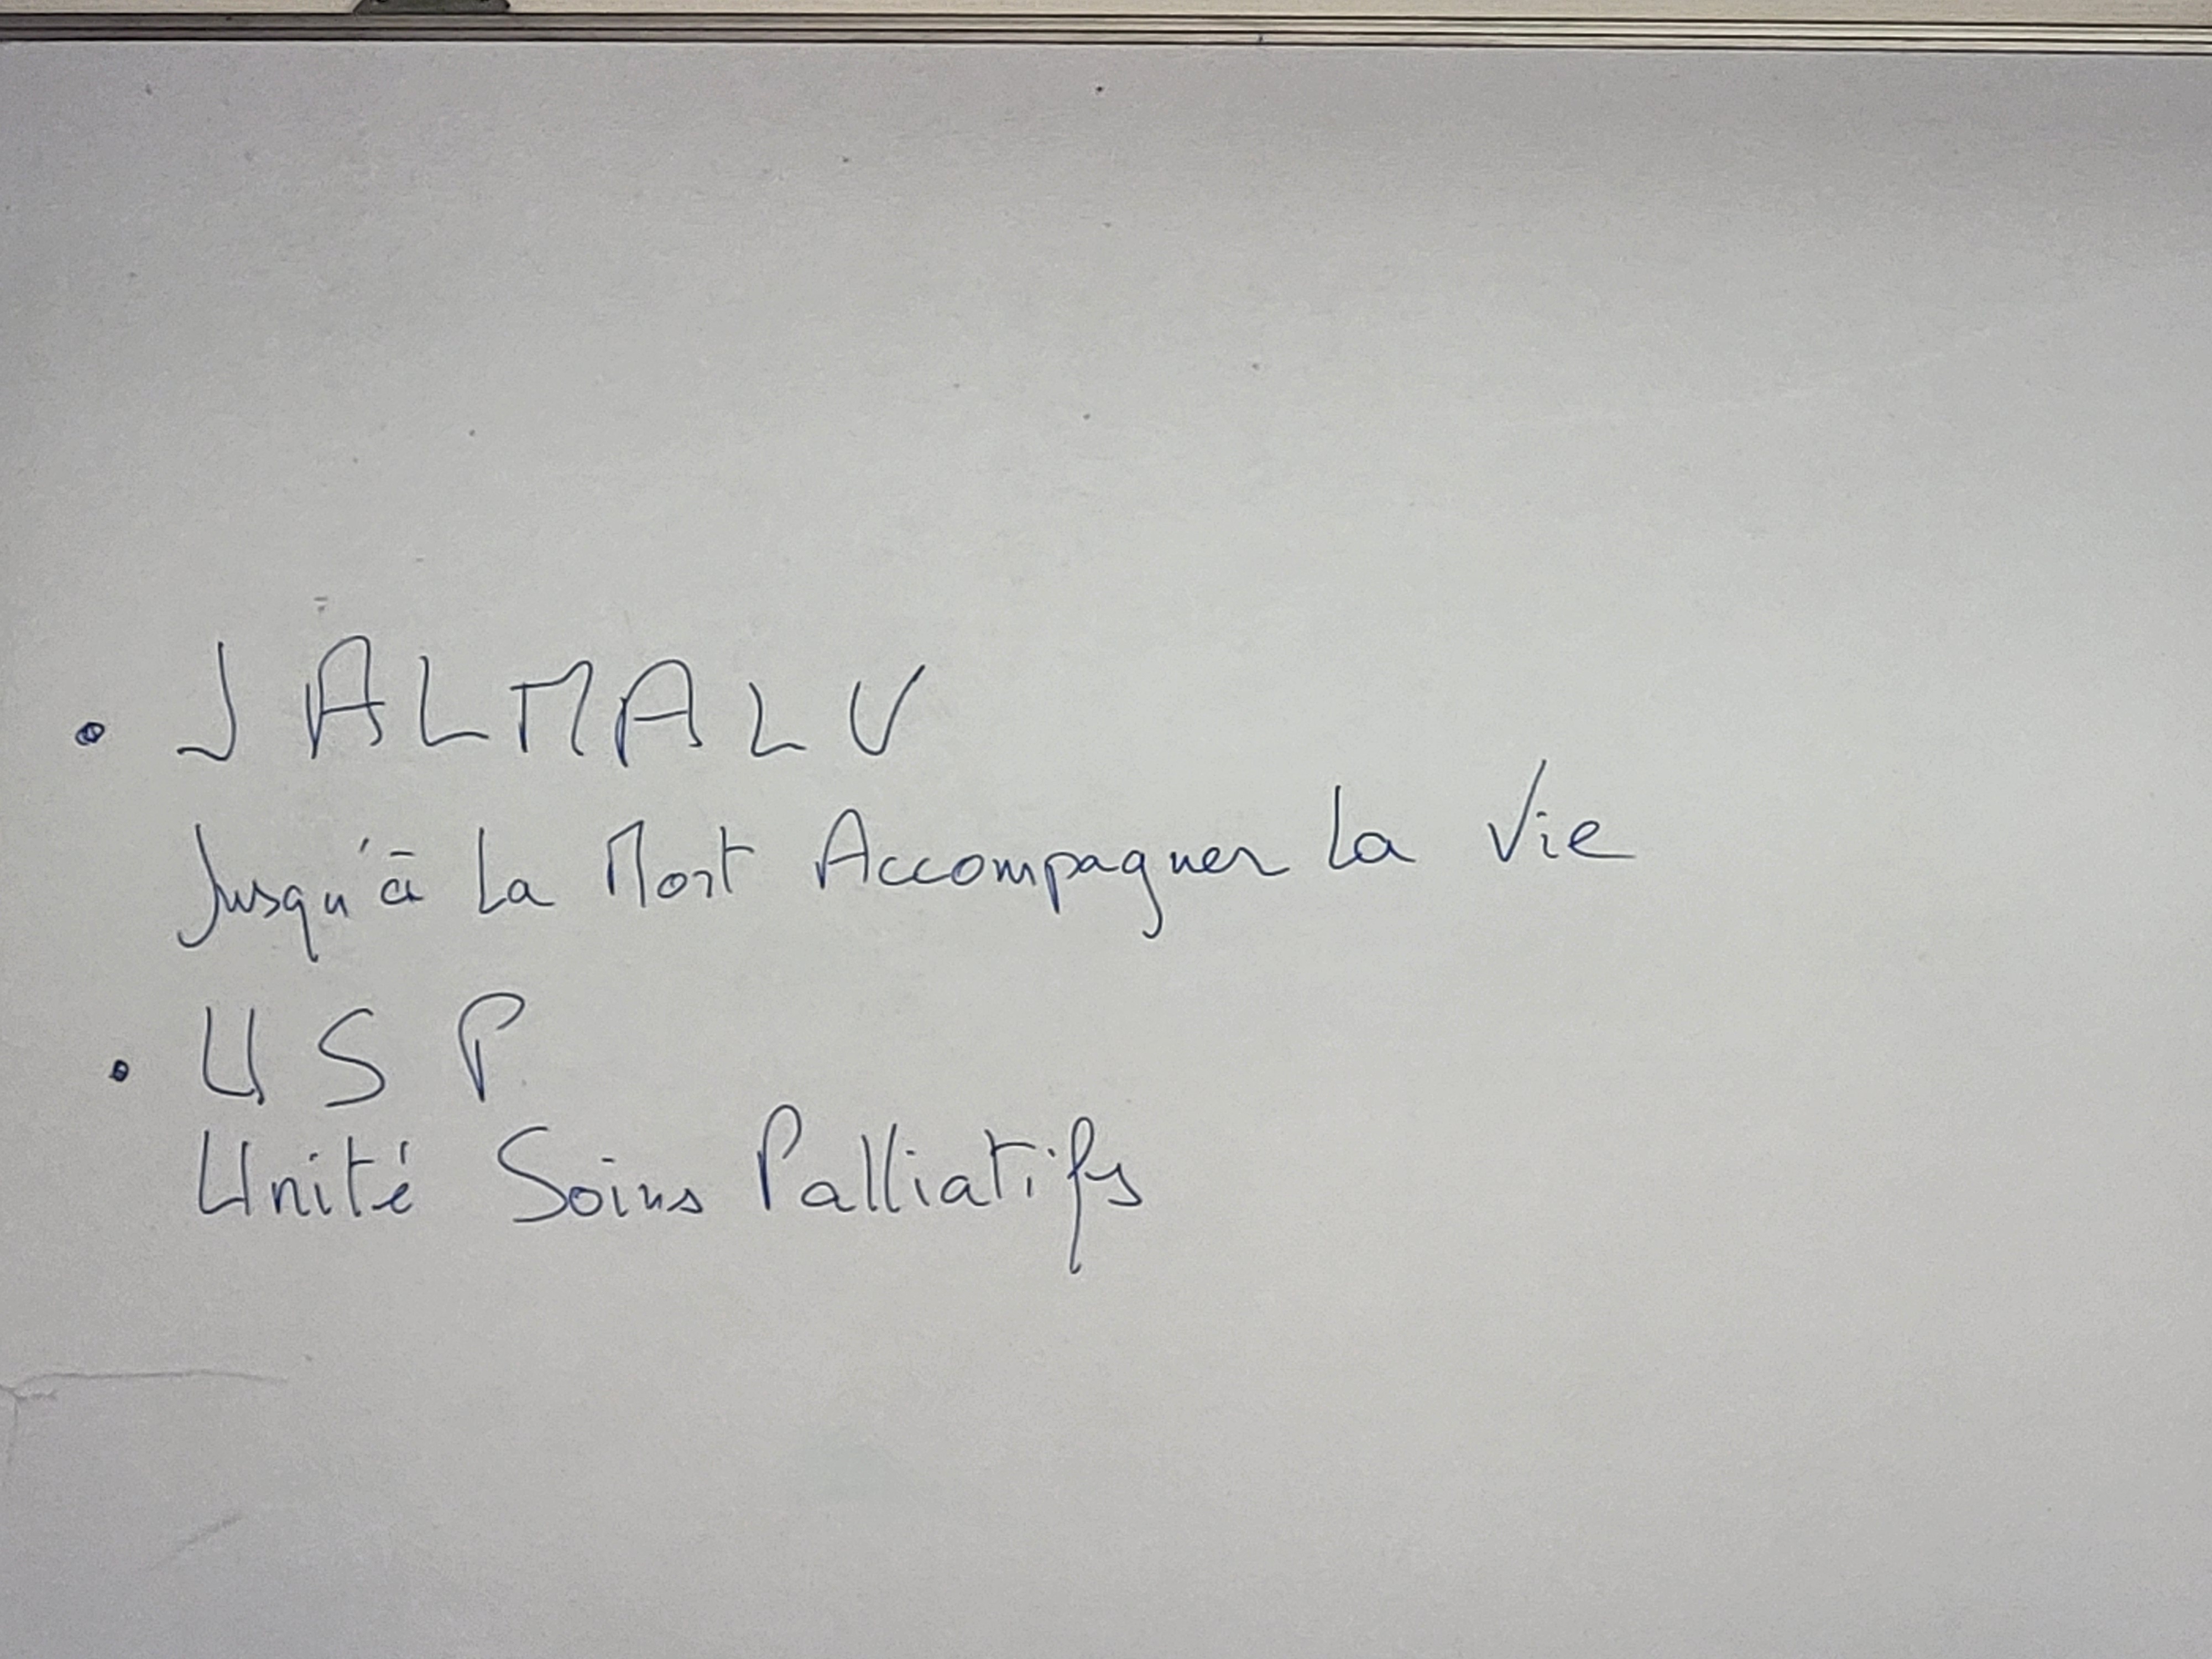 • JALMALV
Jusqu'à La Mort Accompagner La Vie
• USP
Unité Soins Palliatifs